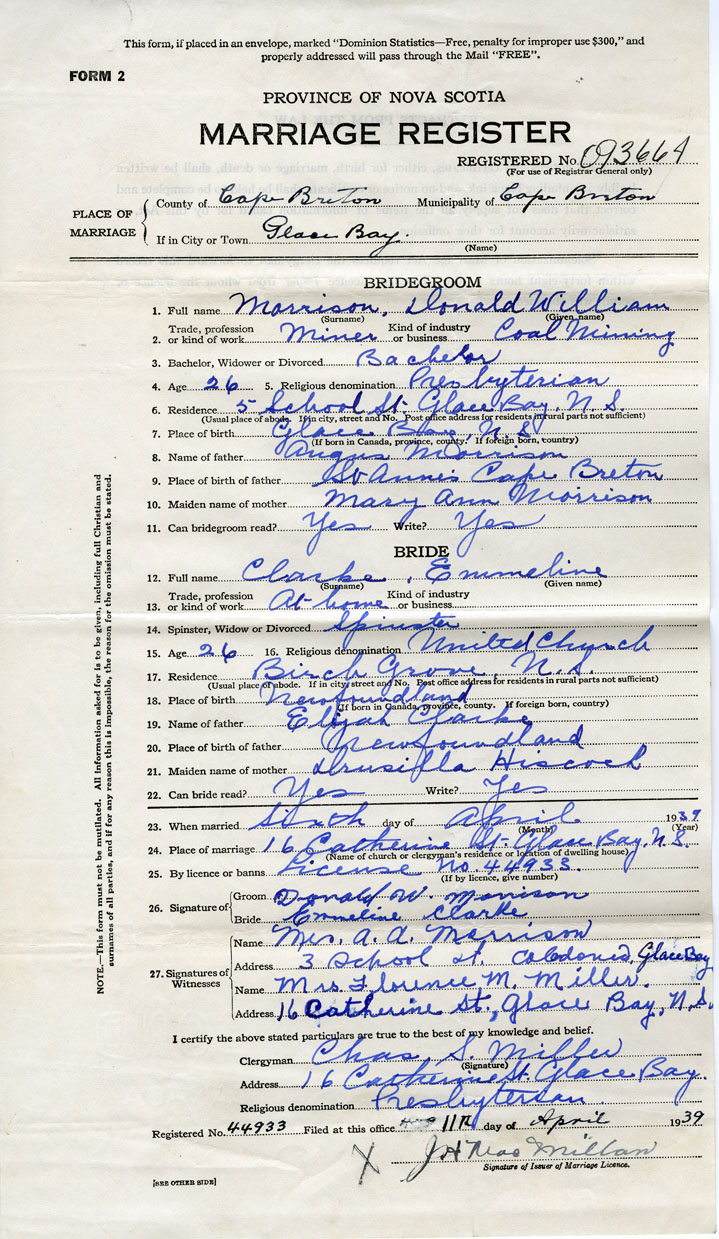 This form, if placed in an envelope, marked "Dominion Statistics—Free, penalty for improper use $300," and
properly addressed will pass through the Mail "FREE".
FORM 2
PROVINCE OF NOVA SCOTIA
MARRIAGE REGISTER
REGISTERED No. 093664
(For use of Registrar General only)
PLACE OF MARRIAGE
County of Cape Breton Municipality of Cape Breton
If in City or Town Glace Bay.
(Name)
BRIDEGROOM
1. Full name Morrison, Donald William
(Surname) (Given name)
2. Trade, profession or kind of work Miner Kind of industry or business Coal Mining
3. Bachelor, Widower or Divorced Bachelor
4. Age 26 5. Religious denomination Presbyterian
6. Residence 5 School St. Glace Bay, N.S.
(Usual place of abode. If in city, street and No. Post office address for residents in rural parts not sufficient)
7. Place of birth Glace Bay, N.S
(If born in Canada, province, county. If foreign born, country)
8. Name of father Angus Morrison
9. Place of birth of father St Annis Cape Breton
10. Maiden name of mother Mary Ann Morrison
11. Can bridegroom read? Yes Write? Yes
BRIDE
12. Full name Clarke, Emmeline
(Surname) (Given name)
13. Trade, profession or kind of work At-home Kind of industry or business
14. Spinster, Widow or Divorced Spinster
15. Age 26 16. Religious denomination United Church
17. Residence Birch Grove, N.S.
(Usual place of abode. If in city street and No. Post office address for residents in rural parts not sufficient)
18. Place of birth Newfoundland
(If born in Canada, province, county. If foreign born, country)
19. Name of father Elijah Clarke
20. Place of birth of father Newfoundland
21. Maiden name of mother Drusilla Hiscock
22. Can bride read? Yes Write? Yes
23. When married Sixth day of April 1939
(Month) (Year)
24. Place of marriage 16 Catherine St-Glace Bay, N.S.
(Name of church or clergyman's residence or location of dwelling house)
25. By licence or banns License No. 44933.
(If by licence, give number)
26. Signature of
Groom Donald W. Morrison
Bride Emmeline Clarke
27. Signatures of Witnesses
Name Mrs. A. A. Morrison
Address 3 School st. Caledonia, Glace Bay
Name Mrs Florence M. Miller.
Address 16 Catherine St., Glace Bay, N.S.
I certify the above stated particulars are true to the best of my knowledge and belief.
Clergyman Chas. S. Miller
(Signature)
Address 16 Catherine St. Glace Bay.
Religious denomination Presbyterian.
Registered No. 44933 Filed at this office 11th day of April 1939
J H MacMillan
Signature of Issuer of Marriage Licence.
[SEE OTHER SIDE]
NOTE.—This form must not be mutilated. All information asked for is to be given, including full Christian and
surnames of all parties, and if for any reason this is impossible, the reason for the omission must be stated.